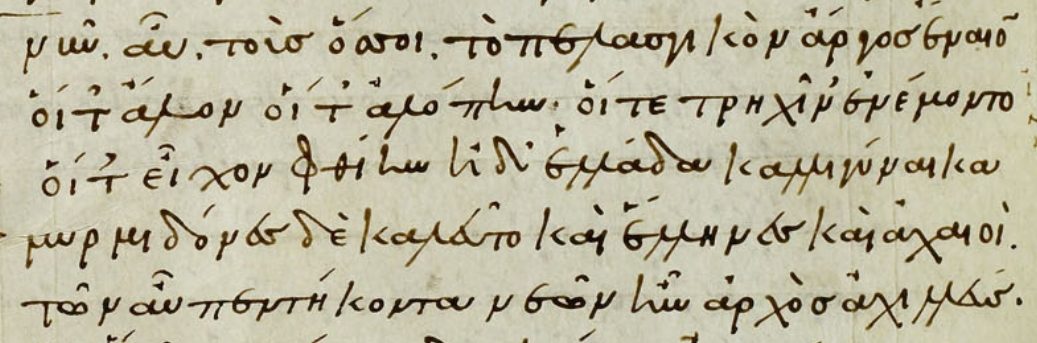 νῦν. αὖ. τοὺσ ὅσσοι. τὸ πελασγικὸν ἄργοσ ἔναιον
οἵ τ' ἄλον οἵ τ' ἀλόπην. οἵ τε τρηχῖν' ἐνέμοντο
οἵ τ' εἶχον φθίην ἠδ' ἑλλάδα καλλιγύναικα
μυρμιδόνες δὲ καλεῦντο καὶ ἕλληνες καὶ ἀχαιοί.
τῶν αὖ πεντήκοντα νεῶν ἦν ἀρχὸσ ἀχιλλεύς.